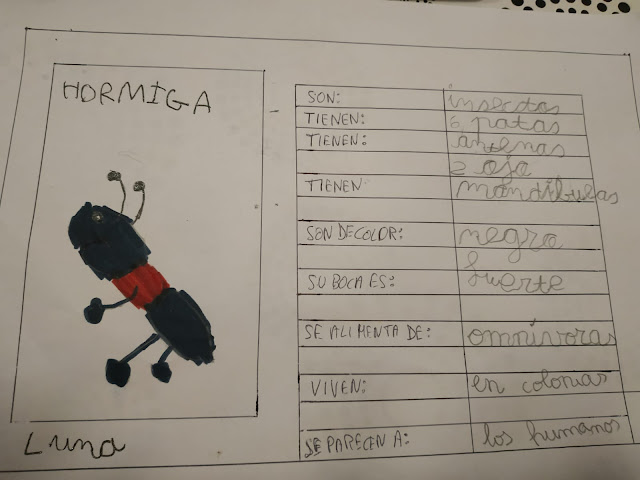 HORMIGA
SON: insectos
TIENEN: 6 patas
TIENEN: antenas
2 ojo
TIENEN mandibulas
SON DE COLOR: negro
SU BOCA ES: fuerte
SE ALIMENTA DE: omnívoras
VIVEN: en colonias
SE PARECEN A: los humanos
Luna